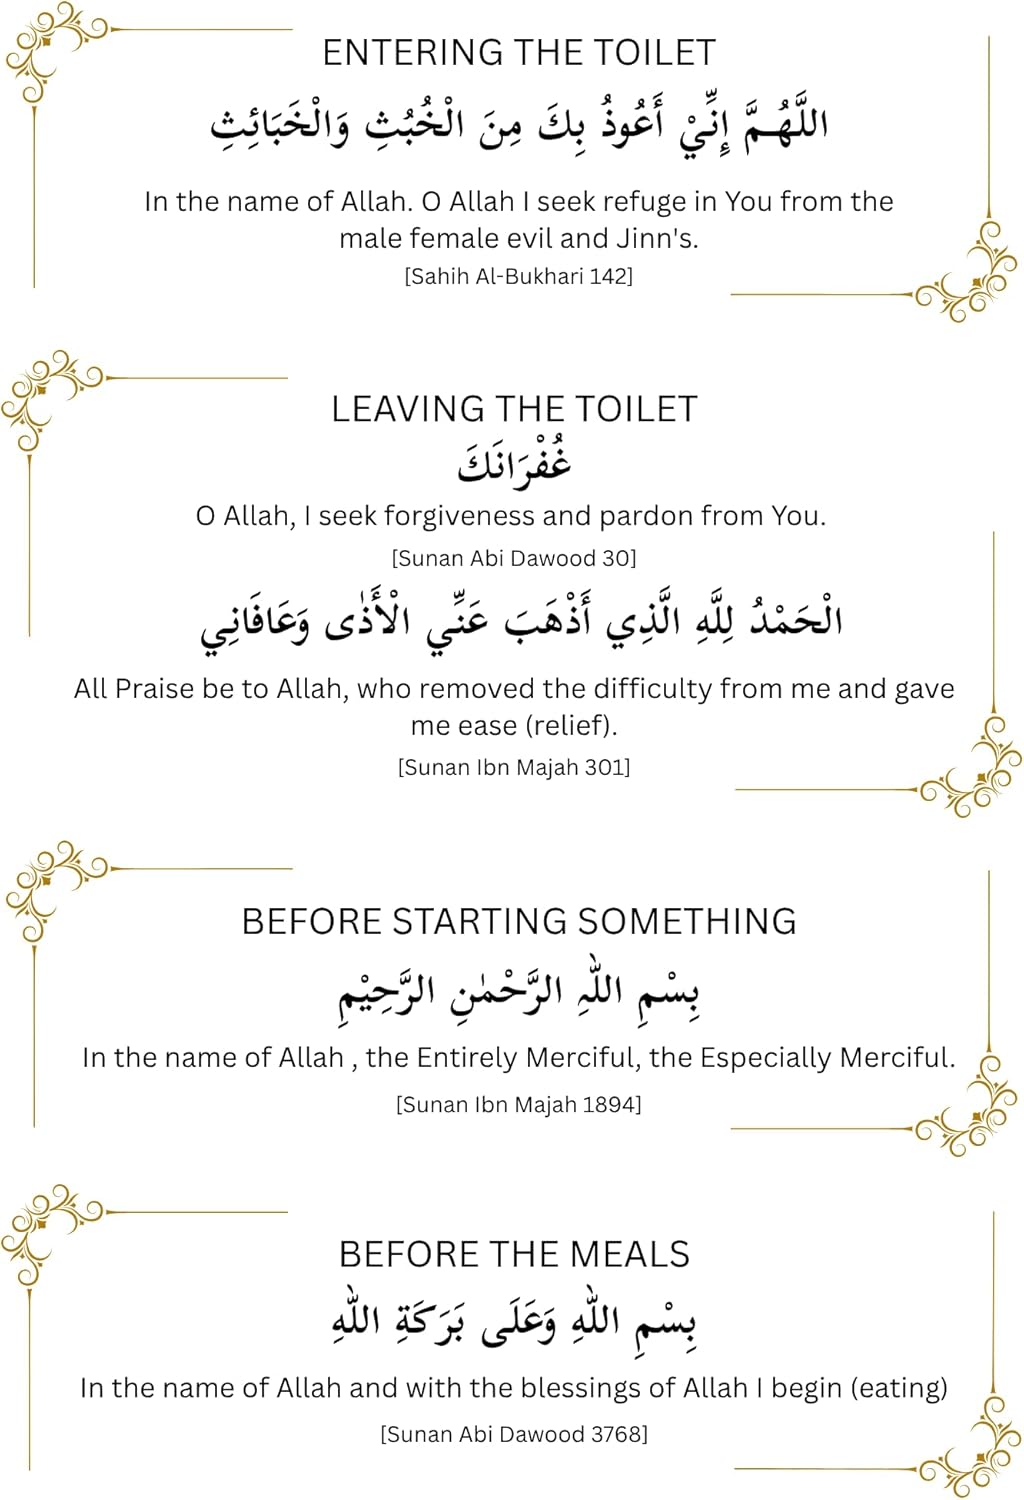 ENTERING THE TOILET
اللَّهُـمَّ إِنِّيْ أَعُوذُ بِكَ مِنَ الْخُبُثِ وَالْخَبَائِثِ
In the name of Allah. O Allah I seek refuge in You from the
male female evil and Jinn's.
[Sahih Al-Bukhari 142]
LEAVING THE TOILET
غُفْرَانَكَ
O Allah, I seek forgiveness and pardon from You.
[Sunan Abi Dawood 30]
الْحَمْدُ لِلَّهِ الَّذِي أَذْهَبَ عَنِّي الْأَذٰى وَعَافَانِي
All Praise be to Allah, who removed the difficulty from me and gave
me ease (relief).
[Sunan Ibn Majah 301]
BEFORE STARTING SOMETHING
بِسْمِ اللهِ الرَّحْمٰنِ الرَّحِيْمِ
In the name of Allah , the Entirely Merciful, the Especially Merciful.
[Sunan Ibn Majah 1894]
BEFORE THE MEALS
بِسْمِ اللهِ وَعَلَى بَرَكَةِ اللهِ
In the name of Allah and with the blessings of Allah I begin (eating)
[Sunan Abi Dawood 3768]